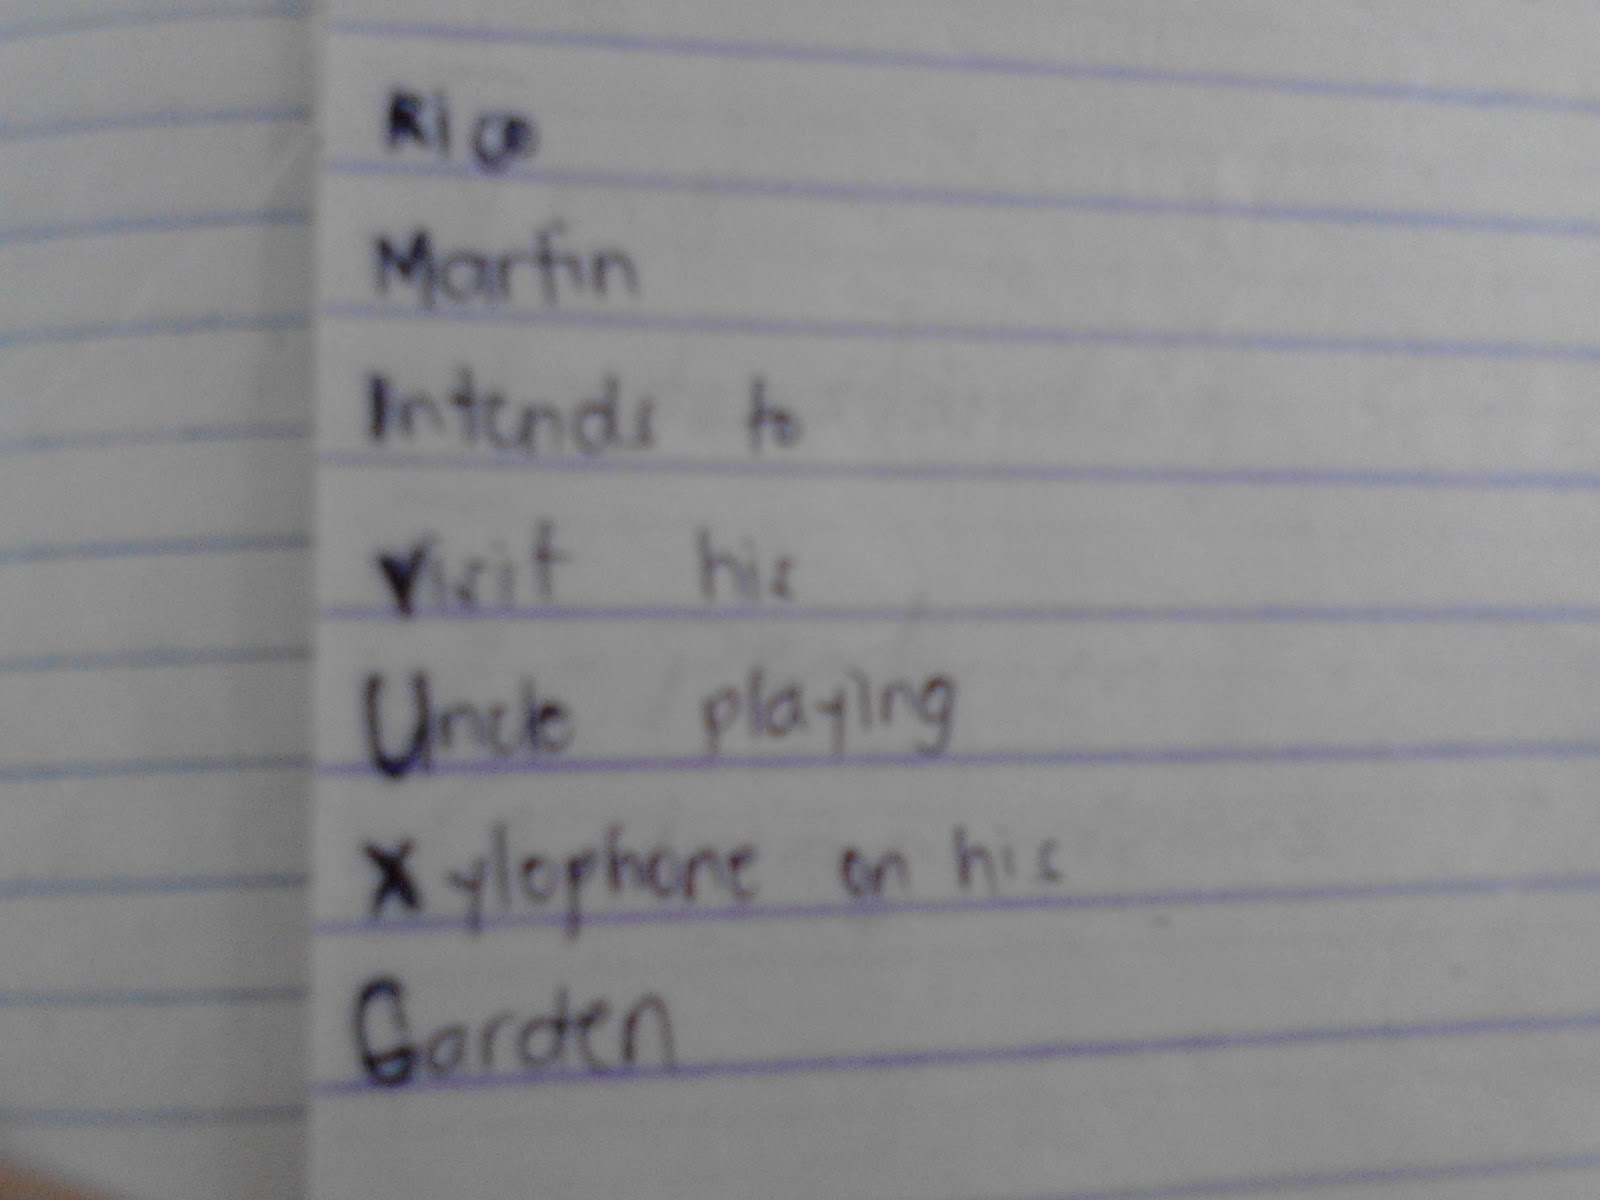 Rico
Martin
Intends to
Visit his
Uncle playing
Xylophone on his
Garden